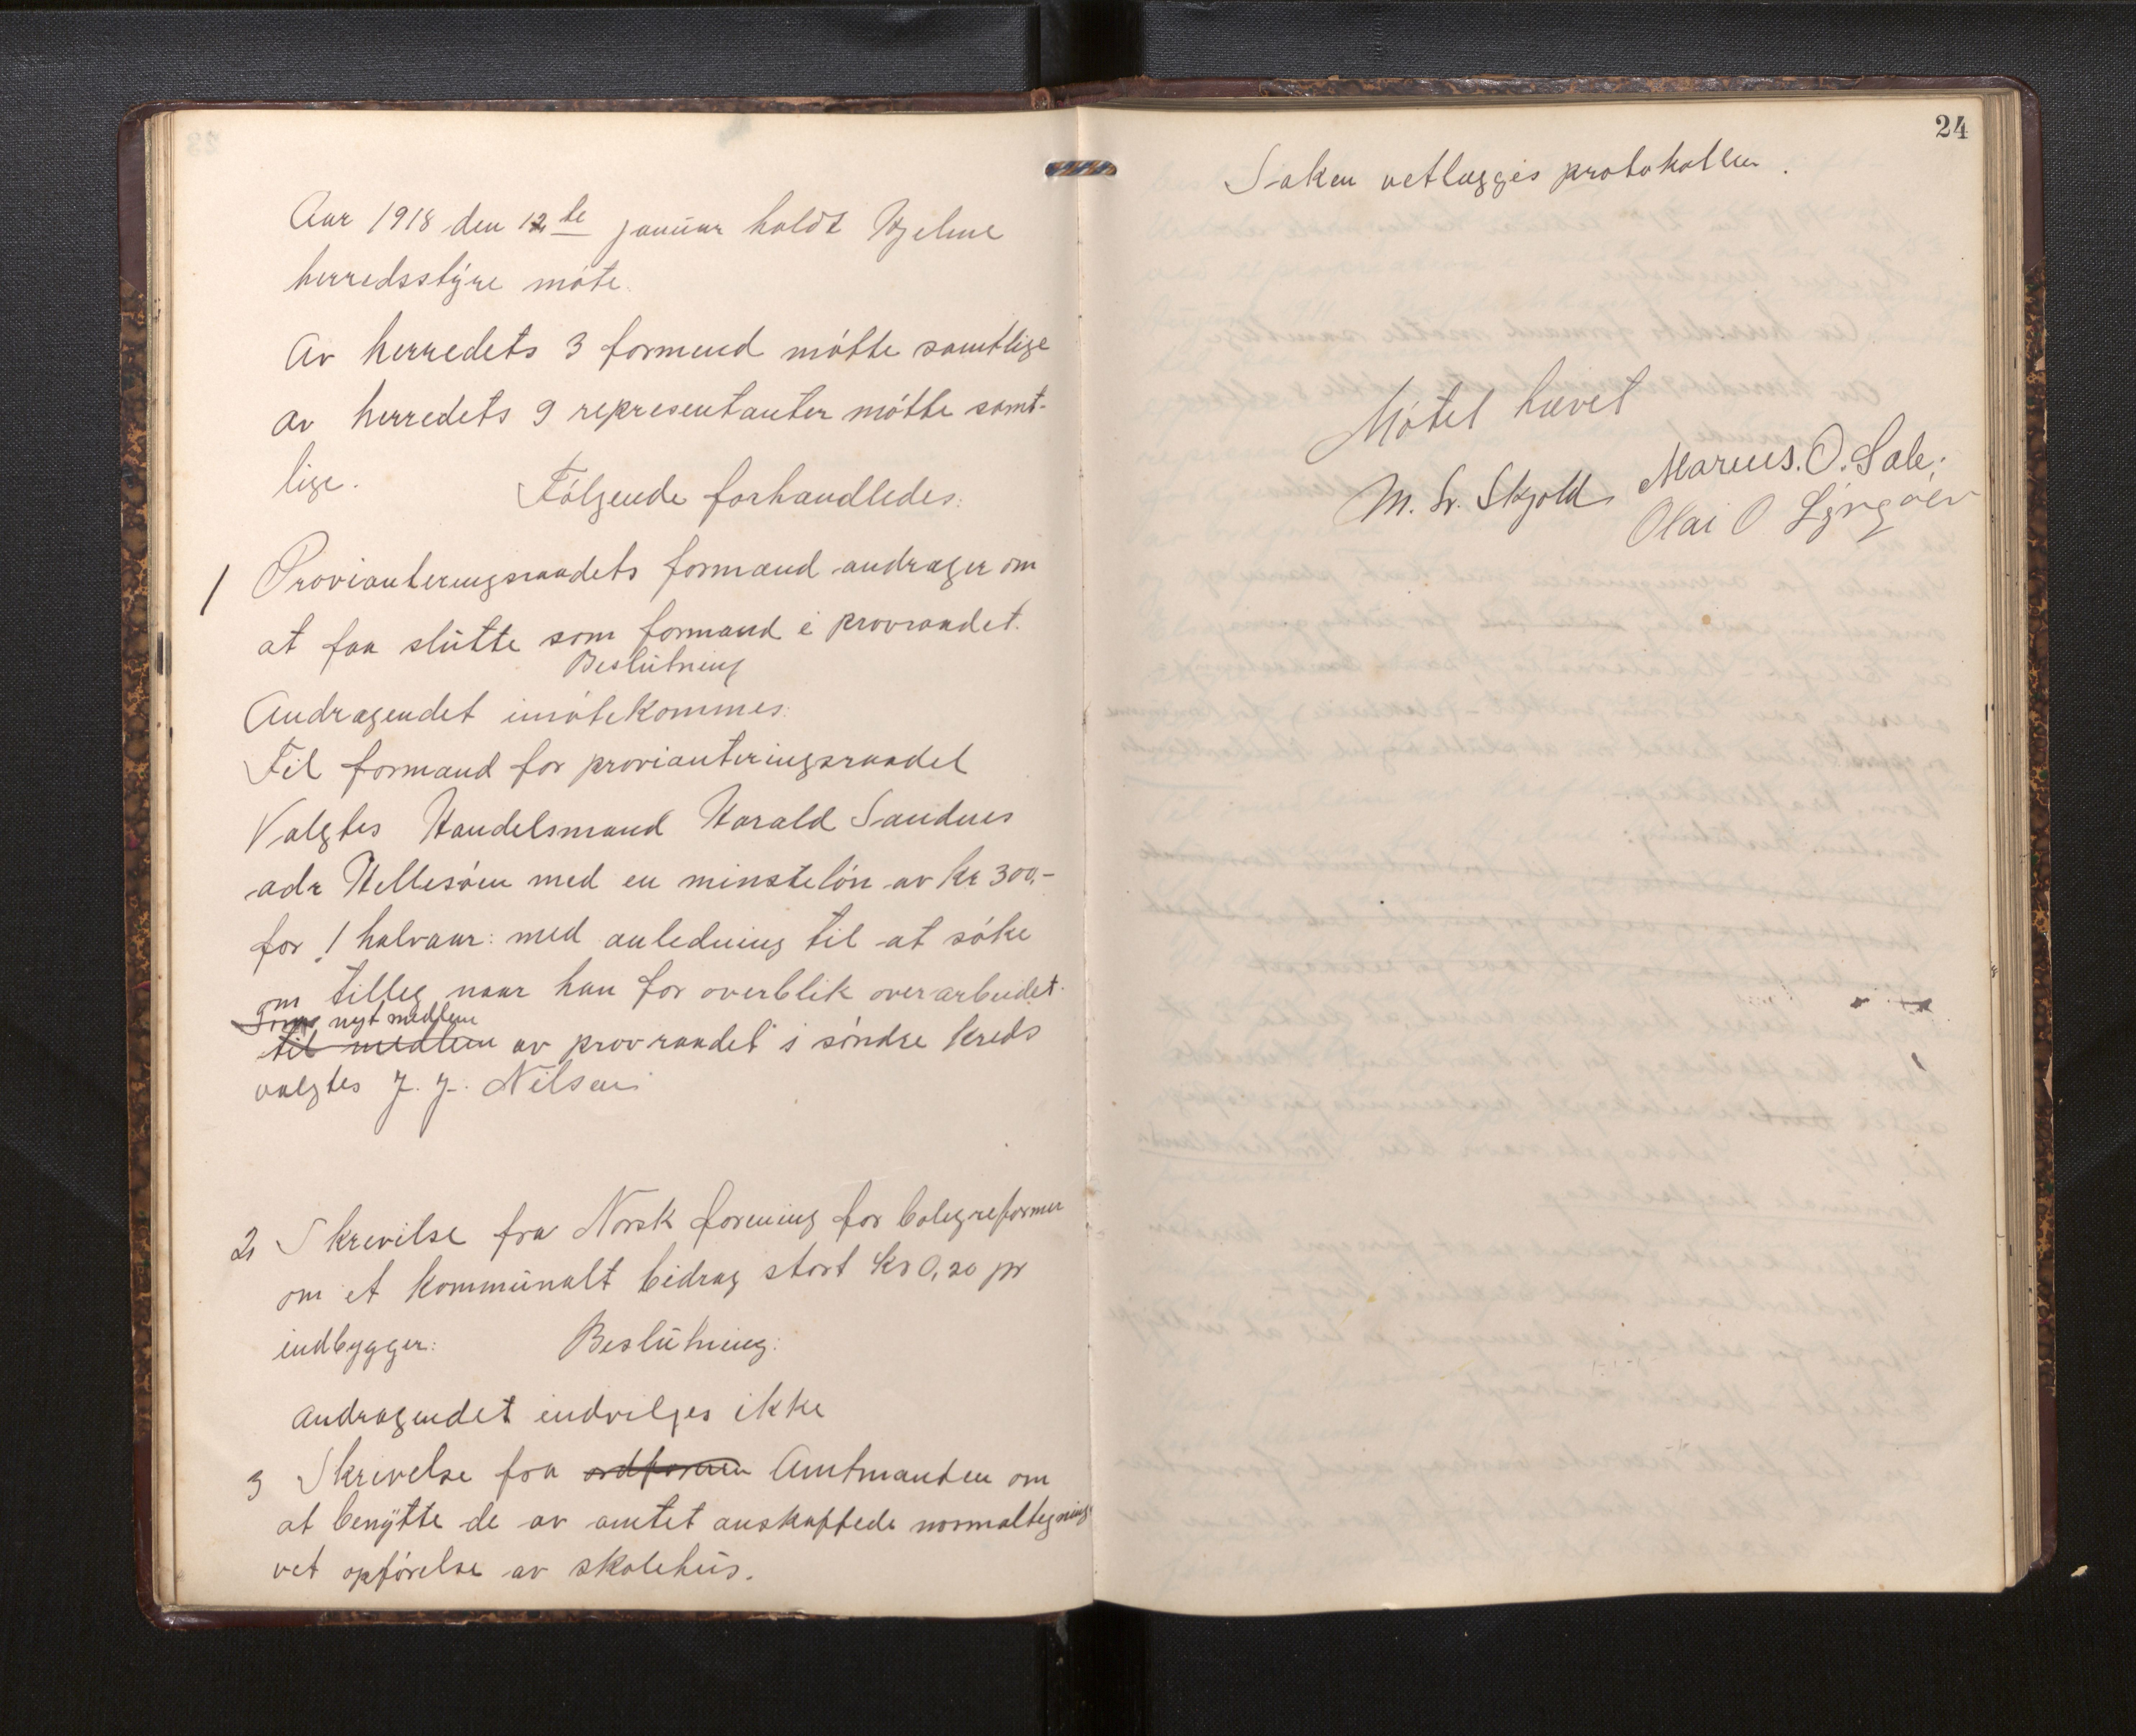 Aar 1918 den 12te januar holdt Hjelme
herredsstyre møte.
Av herredets 3 formend møtte samtlige
av herredets 9 representanter møtte samt-
lige. Følgende forhandledes:
1 Provianteringsraadets formand andrager om
at faa slutte som formand i provraadet.
Beslutning
Andragendet imøtekommes:
Til formand for provianteringsraadet
Valgtes Handelsmand Harald Sandnes
adr Hellesøen med en minsteløn av kr 300,-
for 1 halvaar: med anledning til at søke
om tilleg naar han for overblik over arbeidet.
Som nyt medlem
til medlem av provraadet i søndre kreds
valgtes J. J. Nilsen
2, Skrevilse fra Norsk forening for boligreformer
om et kommunalt bidrag stort kr 0,20 pr
indbygger: Beslutning:
Andragendet indvilges ikke
3 Skrivelse fra ordføreren Amtmanden om
at benytte de av amtet anskaffede normaltegnings
vet opførelse av skolehus.
24
Saken vetlægges protokollen.
Møtet hævet
M. Sr. Skjold Marius. O. Sale.
Olai O Lyngøen